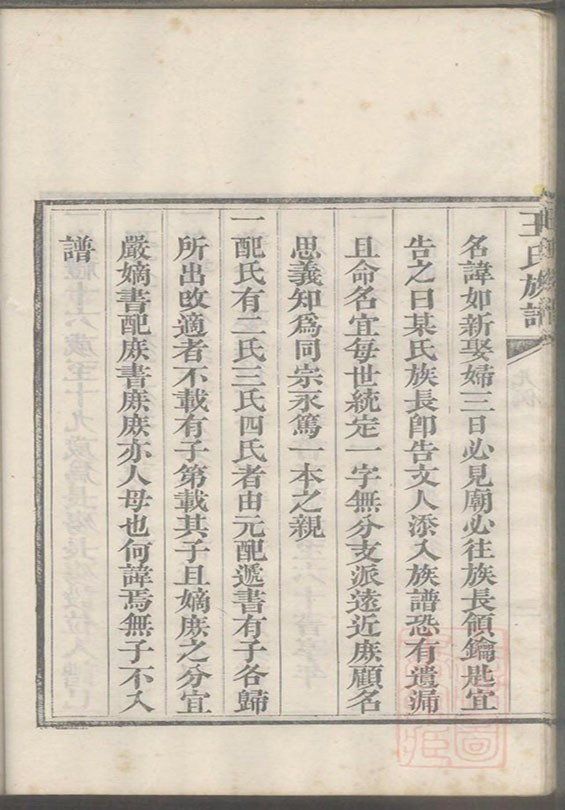 王氏族譜
名諱如新娶婦三日必見廟必往族長領鑰匙宜
告之曰某氏族長卽告文人添入族譜恐有遺漏
且命名宜每世統定一字無分支派遠近庶顧名
思義知爲同宗永篤一本之親
一配氏有二氏三氏四氏者由元配遞書有子各歸
所出改適者不載有子第載其子且嫡庶之分宜
嚴嫡書配庶書庶庶亦人母也何諱焉無子不入
譜